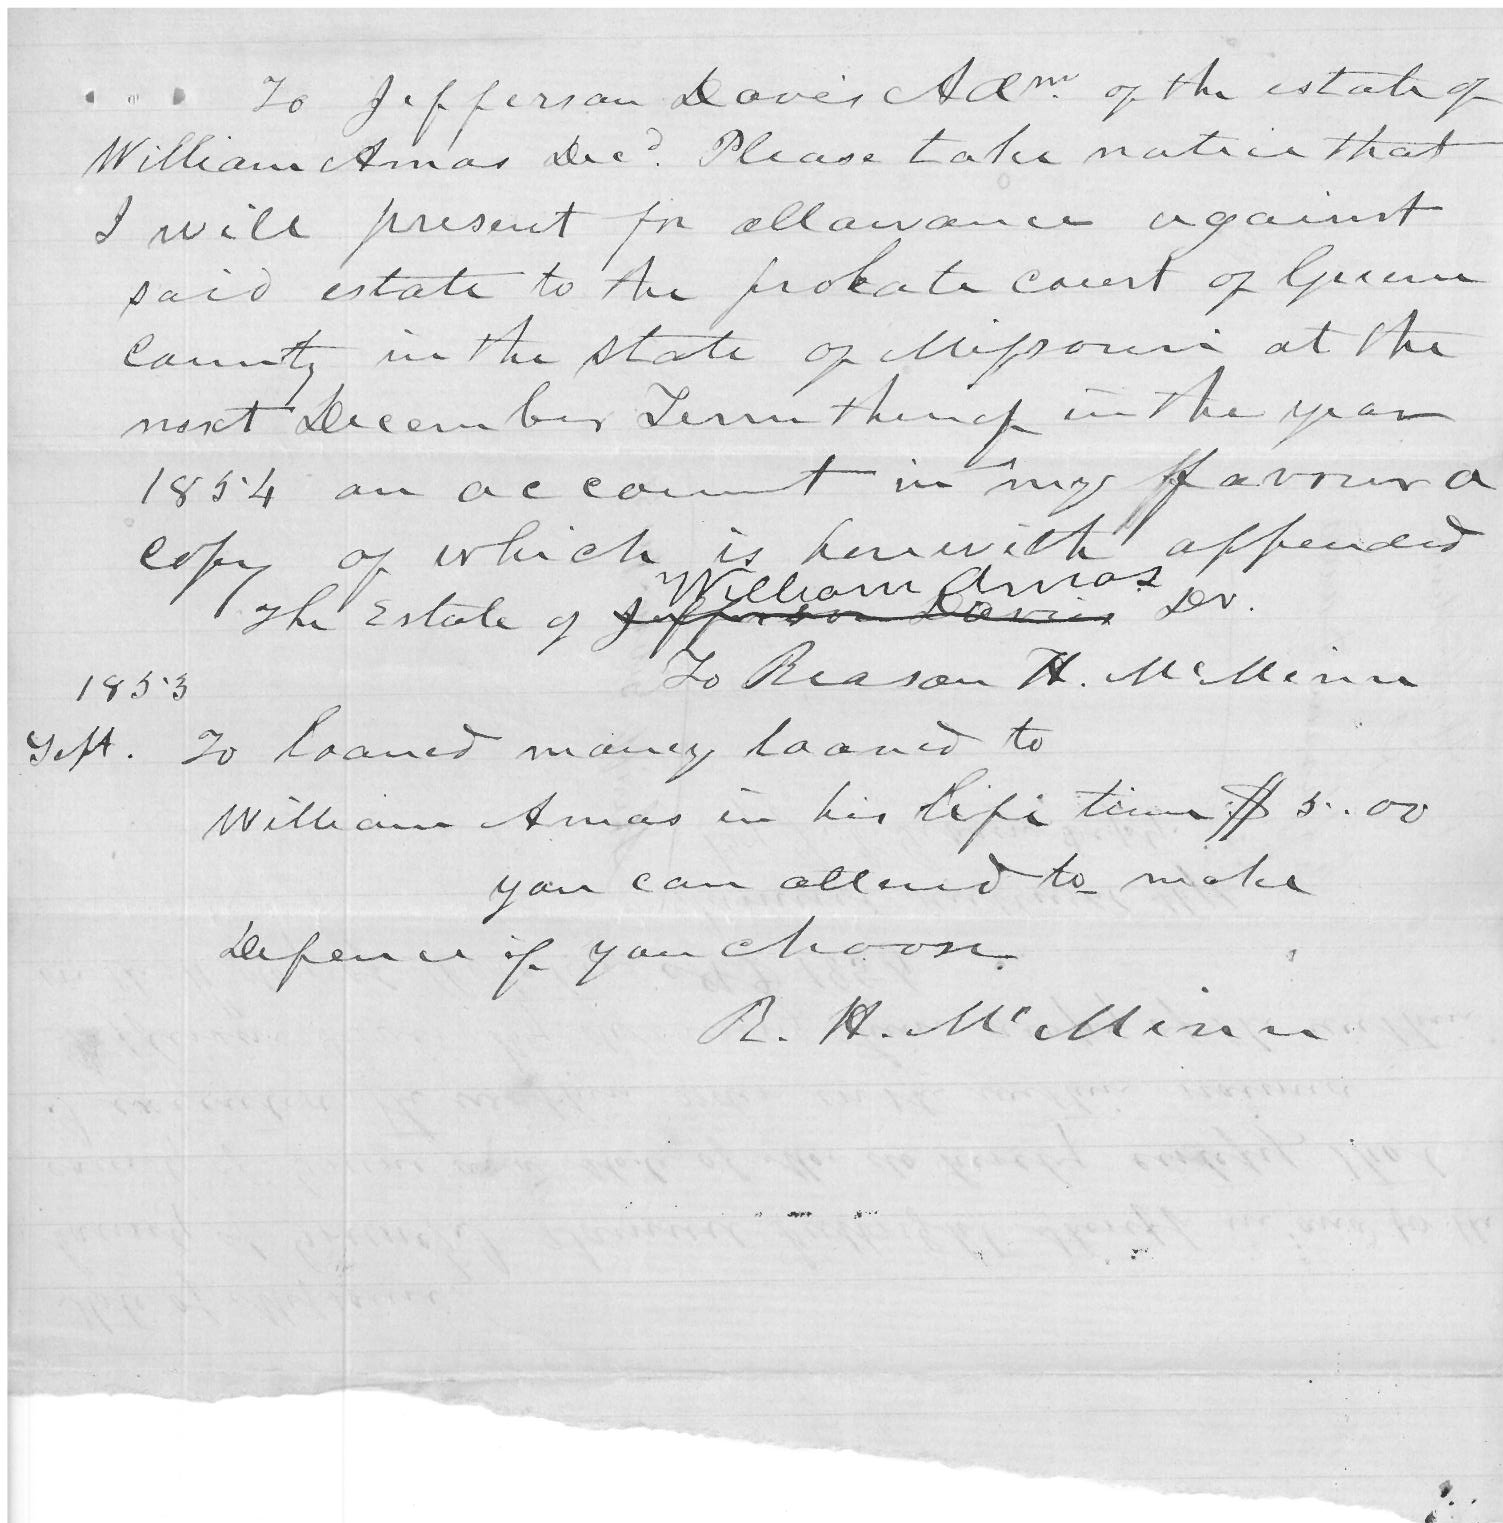 To Jefferson Davis Adm. of the estate of
William Amos Decd. Please take notice that
I will present for allowance against
said estate to the probate court of Green
county in the state of Missouri at the
next December Term thereof in the year
1854 an account in my favour a
copy of which is herewith appended
William Amos
The Estate of Jefferson Davis Dr.
To Reason H. McMinn
1853
Sept. To loaned money loaned to
William Amos in his life time $5.00
you can attend to make
Defence if you choose.
R. H. McMinn